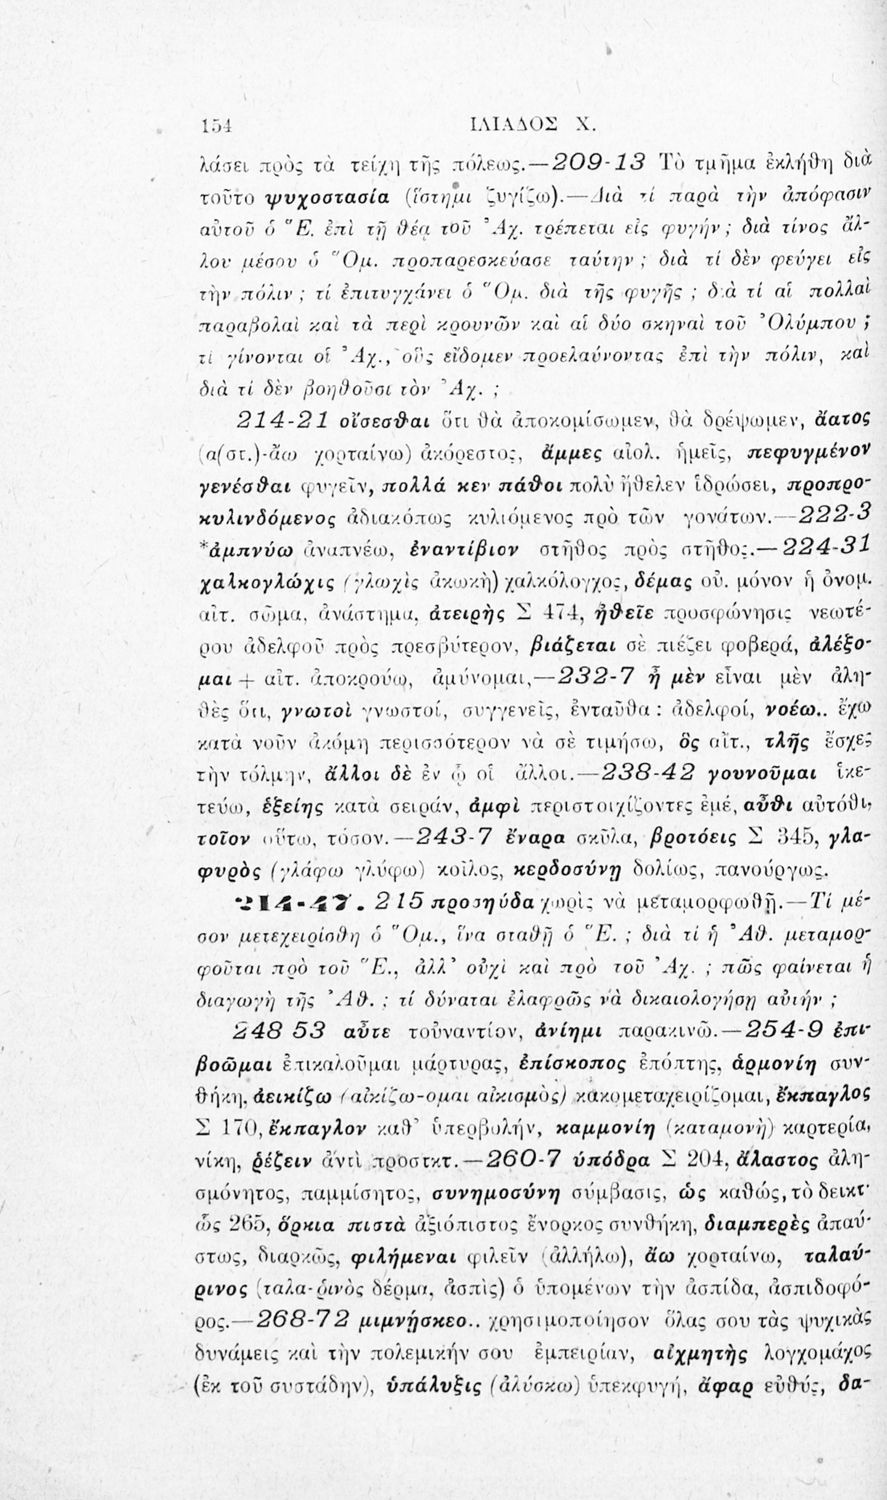 154 ΙΛΙΑΔΟΣ Χ.
λάσει πρὸς τὰ τείχη τῆς πόλεως.—209-13 Τὸ τμῆμα ἐκλήθη διὰ
τοῦτο ψυχοστασία (ἵστημι ζυγίζω).—Διὰ τί παρὰ τὴν ἀπόφασιν
αὐτοῦ ὁ Ἕ. ἐπὶ τῇ θέᾳ τοῦ Ἀχ. τρέπεται εἰς φυγήν; διὰ τίνος ἄλ-
λου μέσου ὁ Ὅμ. προπαρεσκεύασε ταύτην; διὰ τί δὲν φεύγει εἰς
τὴν πόλιν; τί ἐπιτυγχάνει ὁ Ὅμ. διὰ τῆς φυγῆς; διὰ τί αἱ πολλαὶ
παραβολαὶ καὶ τὰ περὶ κρουνῶν καὶ αἱ δύο σκηναὶ τοῦ Ὀλύμπου;
τί γίνονται οἱ Ἀχ., οὓς εἴδομεν προελαύνοντας ἐπὶ τὴν πόλιν, καὶ
διὰ τί δὲν βοηθοῦσι τὸν Ἀχ.;
214-21 οἴσεσθαι ὅτι θὰ ἀποκομίσωμεν, θὰ δρέψωμεν, ἄατος
(α(στ.)-ἄω χορταίνω) ἀκόρεστος, ἄμμες αἰολ. ἡμεῖς, πεφυγμένον
γενέσθαι φυγεῖν, πολλά κεν πάθοι πολὺ ἤθελεν ἱδρώσει, προπρο-
κυλινδόμενος ἀδιακόπως κυλιόμενος πρὸ τῶν γονάτων.—222-3
*ἀμπνύω ἀναπνέω, ἐναντίβιον στῆθος πρὸς στῆθος.—224-31
χαλκογλώχις (γλωχὶς ἀκωκὴ) χαλκόλογχος, δέμας οὐ. μόνον ἡ ὀνομ.
αἰτ. σῶμα, ἀνάστημα, ἀτειρὴς Σ 474, ἠθεῖε προσφώνησις νεωτέ-
ρου ἀδελφοῦ πρὸς πρεσβύτερον, βιάζεται σὲ πιέζει φοβερά, ἀλέξο-
μαι + αἰτ. ἀποκρούω, ἀμύνομαι,—232-7 ἦ μὲν εἶναι μὲν ἀλη-
θὲς ὅτι, γνωτοὶ γνωστοί, συγγενεῖς, ἐνταῦθα: ἀδελφοί, νοέω.. ἔχω
κατὰ νοῦν ἀκόμη περισσότερον νὰ σὲ τιμήσω, ὃς αἰτ., τλῆς ἔσχες
τὴν τόλμην, ἄλλοι δὲ ἐν ᾧ οἱ ἄλλοι.—238-42 γουνοῦμαι ἱκε-
τεύω, ἑξείης κατὰ σειράν, ἀμφὶ περιστοιχίζοντες ἐμέ, αὖθι αὐτόθι,
τοῖον οὕτω, τόσον.—243-7 ἔναρα σκῦλα, βροτόεις Σ 345, γλα-
φυρὸς (γλάφω γλύφω) κοῖλος, κερδοσύνῃ δολίως, πανούργως.
214-47. 215 προσηύδα χωρὶς νὰ μεταμορφωθῇ.—Τί μέ-
σον μετεχειρίσθη ὁ Ὅμ., ἵνα σταθῇ ὁ Ἕ.; διὰ τί ἡ Ἀθ. μεταμορ-
φοῦται πρὸ τοῦ Ἕ., ἀλλ' οὐχὶ καὶ πρὸ τοῦ Ἀχ.; πῶς φαίνεται ἡ
διαγωγὴ τῆς Ἀθ.; τί δύναται ἐλαφρῶς νὰ δικαιολογήσῃ αὐτήν;
248 53 αὖτε τοὐναντίον, ἀνίημι παρακινῶ.—254-9 ἐπι-
βοῶμαι ἐπικαλοῦμαι μάρτυρας, ἐπίσκοπος ἐπόπτης, ἁρμονίη συν-
θήκη, ἀεικίζω (αἰκίζω-ομαι αἰκισμὸς) κακομεταχειρίζομαι, ἔκπαγλος
Σ 170, ἔκπαγλον καθ' ὑπερβολήν, καμμονίη (καταμονὴ) καρτερία,
νίκη, ῥέζειν ἀντὶ προστκτ.—260-7 ὑπόδρα Σ 204, ἄλαστος ἀλη-
σμόνητος, παμμίσητος, συνημοσύνη σύμβασις, ὡς καθώς, τὸ δεικτ·
ὣς 265, ὅρκια πιστὰ ἀξιόπιστος ἔνορκος συνθήκη, διαμπερὲς ἀπαύ-
στως, διαρκῶς, φιλήμεναι φιλεῖν (ἀλλήλω), ἄω χορταίνω, ταλαύ-
ρινος (ταλα-ῥινὸς δέρμα, ἀσπὶς) ὁ ὑπομένων τὴν ἀσπίδα, ἀσπιδοφό-
ρος.—268-72 μιμνῄσκεο.. χρησιμοποίησον ὅλας σου τὰς ψυχικὰς
δυνάμεις καὶ τὴν πολεμικήν σου ἐμπειρίαν, αἰχμητὴς λογχομάχος
(ἐκ τοῦ συστάδην), ὑπάλυξις (ἀλύσκω) ὑπεκφυγή, ἄφαρ εὐθύς, δα-